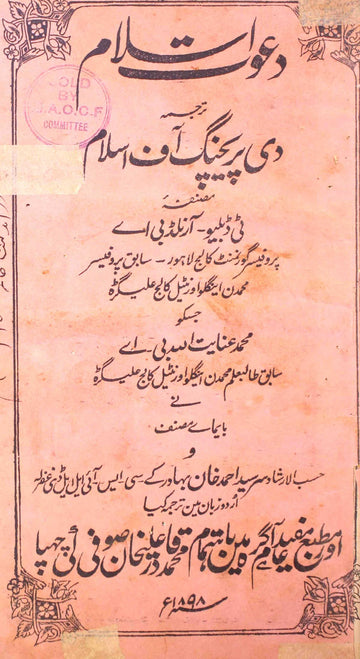 دعوت اسلام
ترجمہ
دی پریچنگ آف اسلام
مصنفہ
ٹی ڈبلیو - آرنلڈ بی اے
پروفیسر گورنمنٹ کالج لاہور - سابق پروفیسر
محمدن اینگلو اورنٹیل کالج علیگڑہ
جسکو
محمد عنایت اللہ بی - اے
سابق طالبعلم محمدن اینگلو اورنٹیل کالج علیگڑہ
نے
بایمائے مصنف
و
حسب الارشاد سر سید احمد خان بہادر کے سی - ایس - آئی ایل ایل ڈی
اُردو زبان مین ترجمہ کیا
اور مطبع مفید عام آگرہ مین باہتمام محمد قادر علیخان صوفی نے چھپا
۱۸۹۸ء
SOLD
BY
M.A.O.C.F
COMMITTEE